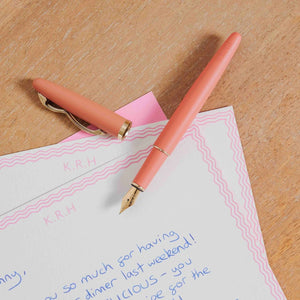 K.R.H
K.R.H
nny,
so much for having
dinner last weekend!
LICIOUS - you
for the